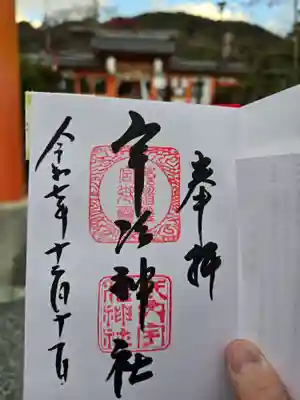 奉拝
宇治神社
令和七年十二月十日